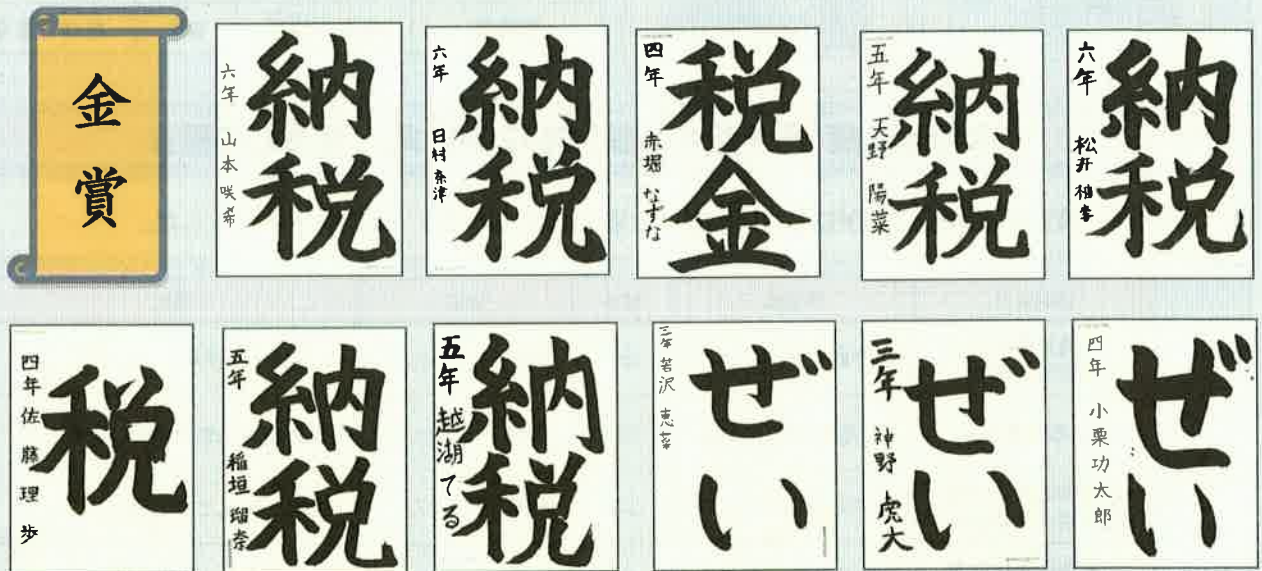 金賞
納税
六年 山本 咲希
納税
六年 日村 奈津
税金
四年 赤堀 なずな
納税
五年 天野 陽菜
納税
六年 松井
税
四年 佐藤理歩
納税
五年 稲垣 瑠奈
納税
五年 越湖 てる
ぜい
三年 若沢 恵菜
ぜい
三年 神野 虎大
ぜい
四年 小栗功太郎